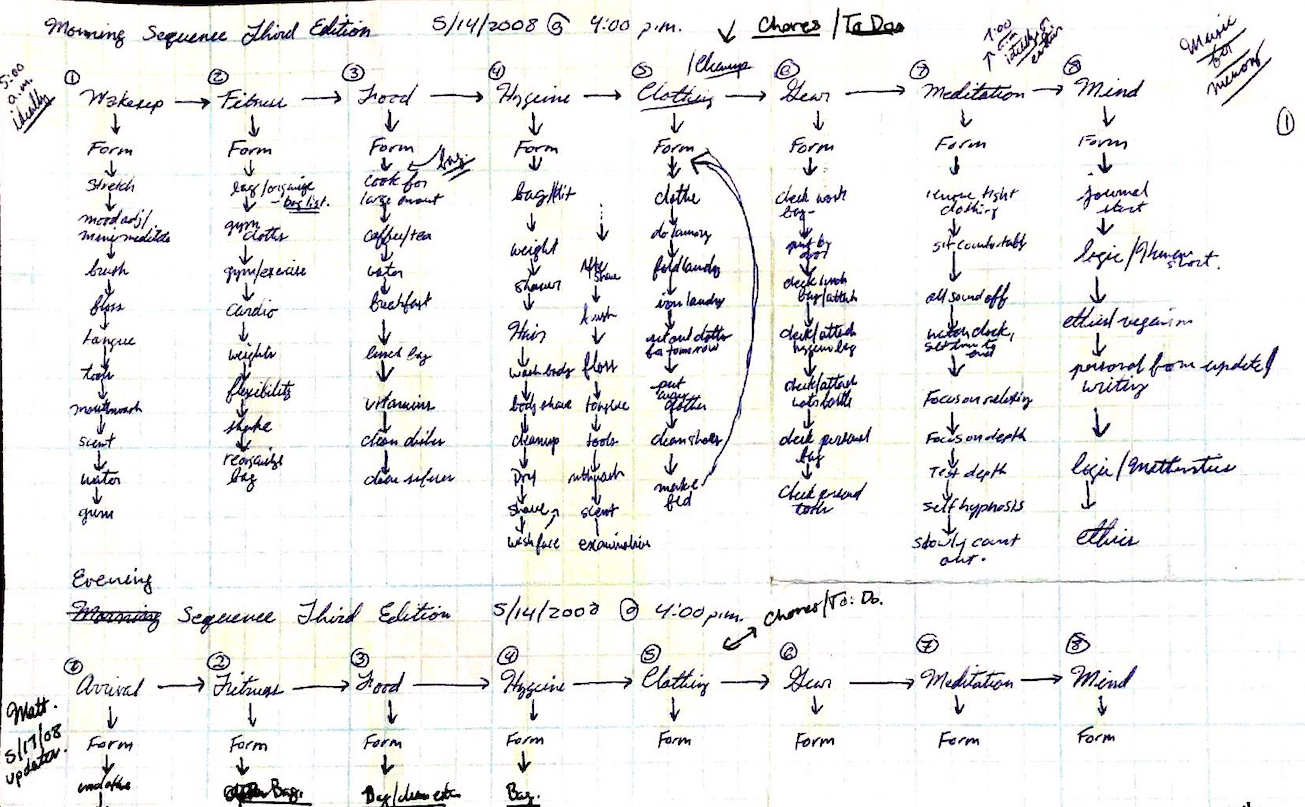 Morning Sequence Third Edition 5/14/2008 @ 4:00 p.m. Chores/To Dos
7:00 a.m. ideally or earlier
Music for memory
5:00 a.m. ideally
/Cleanup
①
① Wakeup → ② Fitness → ③ Food → ④ Hygeine → ⑤ Clothing → ⑥ Gear → ⑦ Meditation → ⑧ Mind
Form
Stretch
mood adj/
mini meditate
brush
floss
tongue
tools
mouthwash
scent
water
gum
Form
bag/organize
- bag list.
gym
cloths
gym/exercise
Cardio
weights
flexibility
shake
reorganize
bag
Form
bag.
cook for
coffee/tea
water
breakfast
lunch bag
vitamins
clean dishes
Form
bag/kit
weight
shower
Hair
wash body
body shave
cleanup
Dry
shave
wash face
after
shave
brush
floss
tongue
tools
mthwash
scent
examination
Form
clothe
do laundry
fold laundry
iron laundry
set out clothes
for tomorrow
put
away
clothes
clean shoes
make
bed
Form
check work
bag
put by
door
check lunch
bag/attach
check/attach
hygiene bag
check/attach
check personal
bag
Check around
Form
remove tight
clothing
sit comfortably
all sound off
watch clock,
set time to
end
Focus on relaxing
Focus on depth
Test depth
Self hypnosis
slowly count
out.
Form
journal
start
logic/
start.
ethics/veganism
personal form update/
writing
logic/Mathematics
ethics
Evening
Morning Sequence Third Edition 5/14/2008 @ 4:00 p.m. Chores/To: Do.
① Arrival → ② Fitness → ③ Food → ④ Hygeine → ⑤ Clothing → ⑥ Gear → ⑦ Meditation → ⑧ Mind
Matt.
5/17/08
updates.
Form Form Form Form Form Form Form Form
unclothe Bag. Bag/clean Bag.